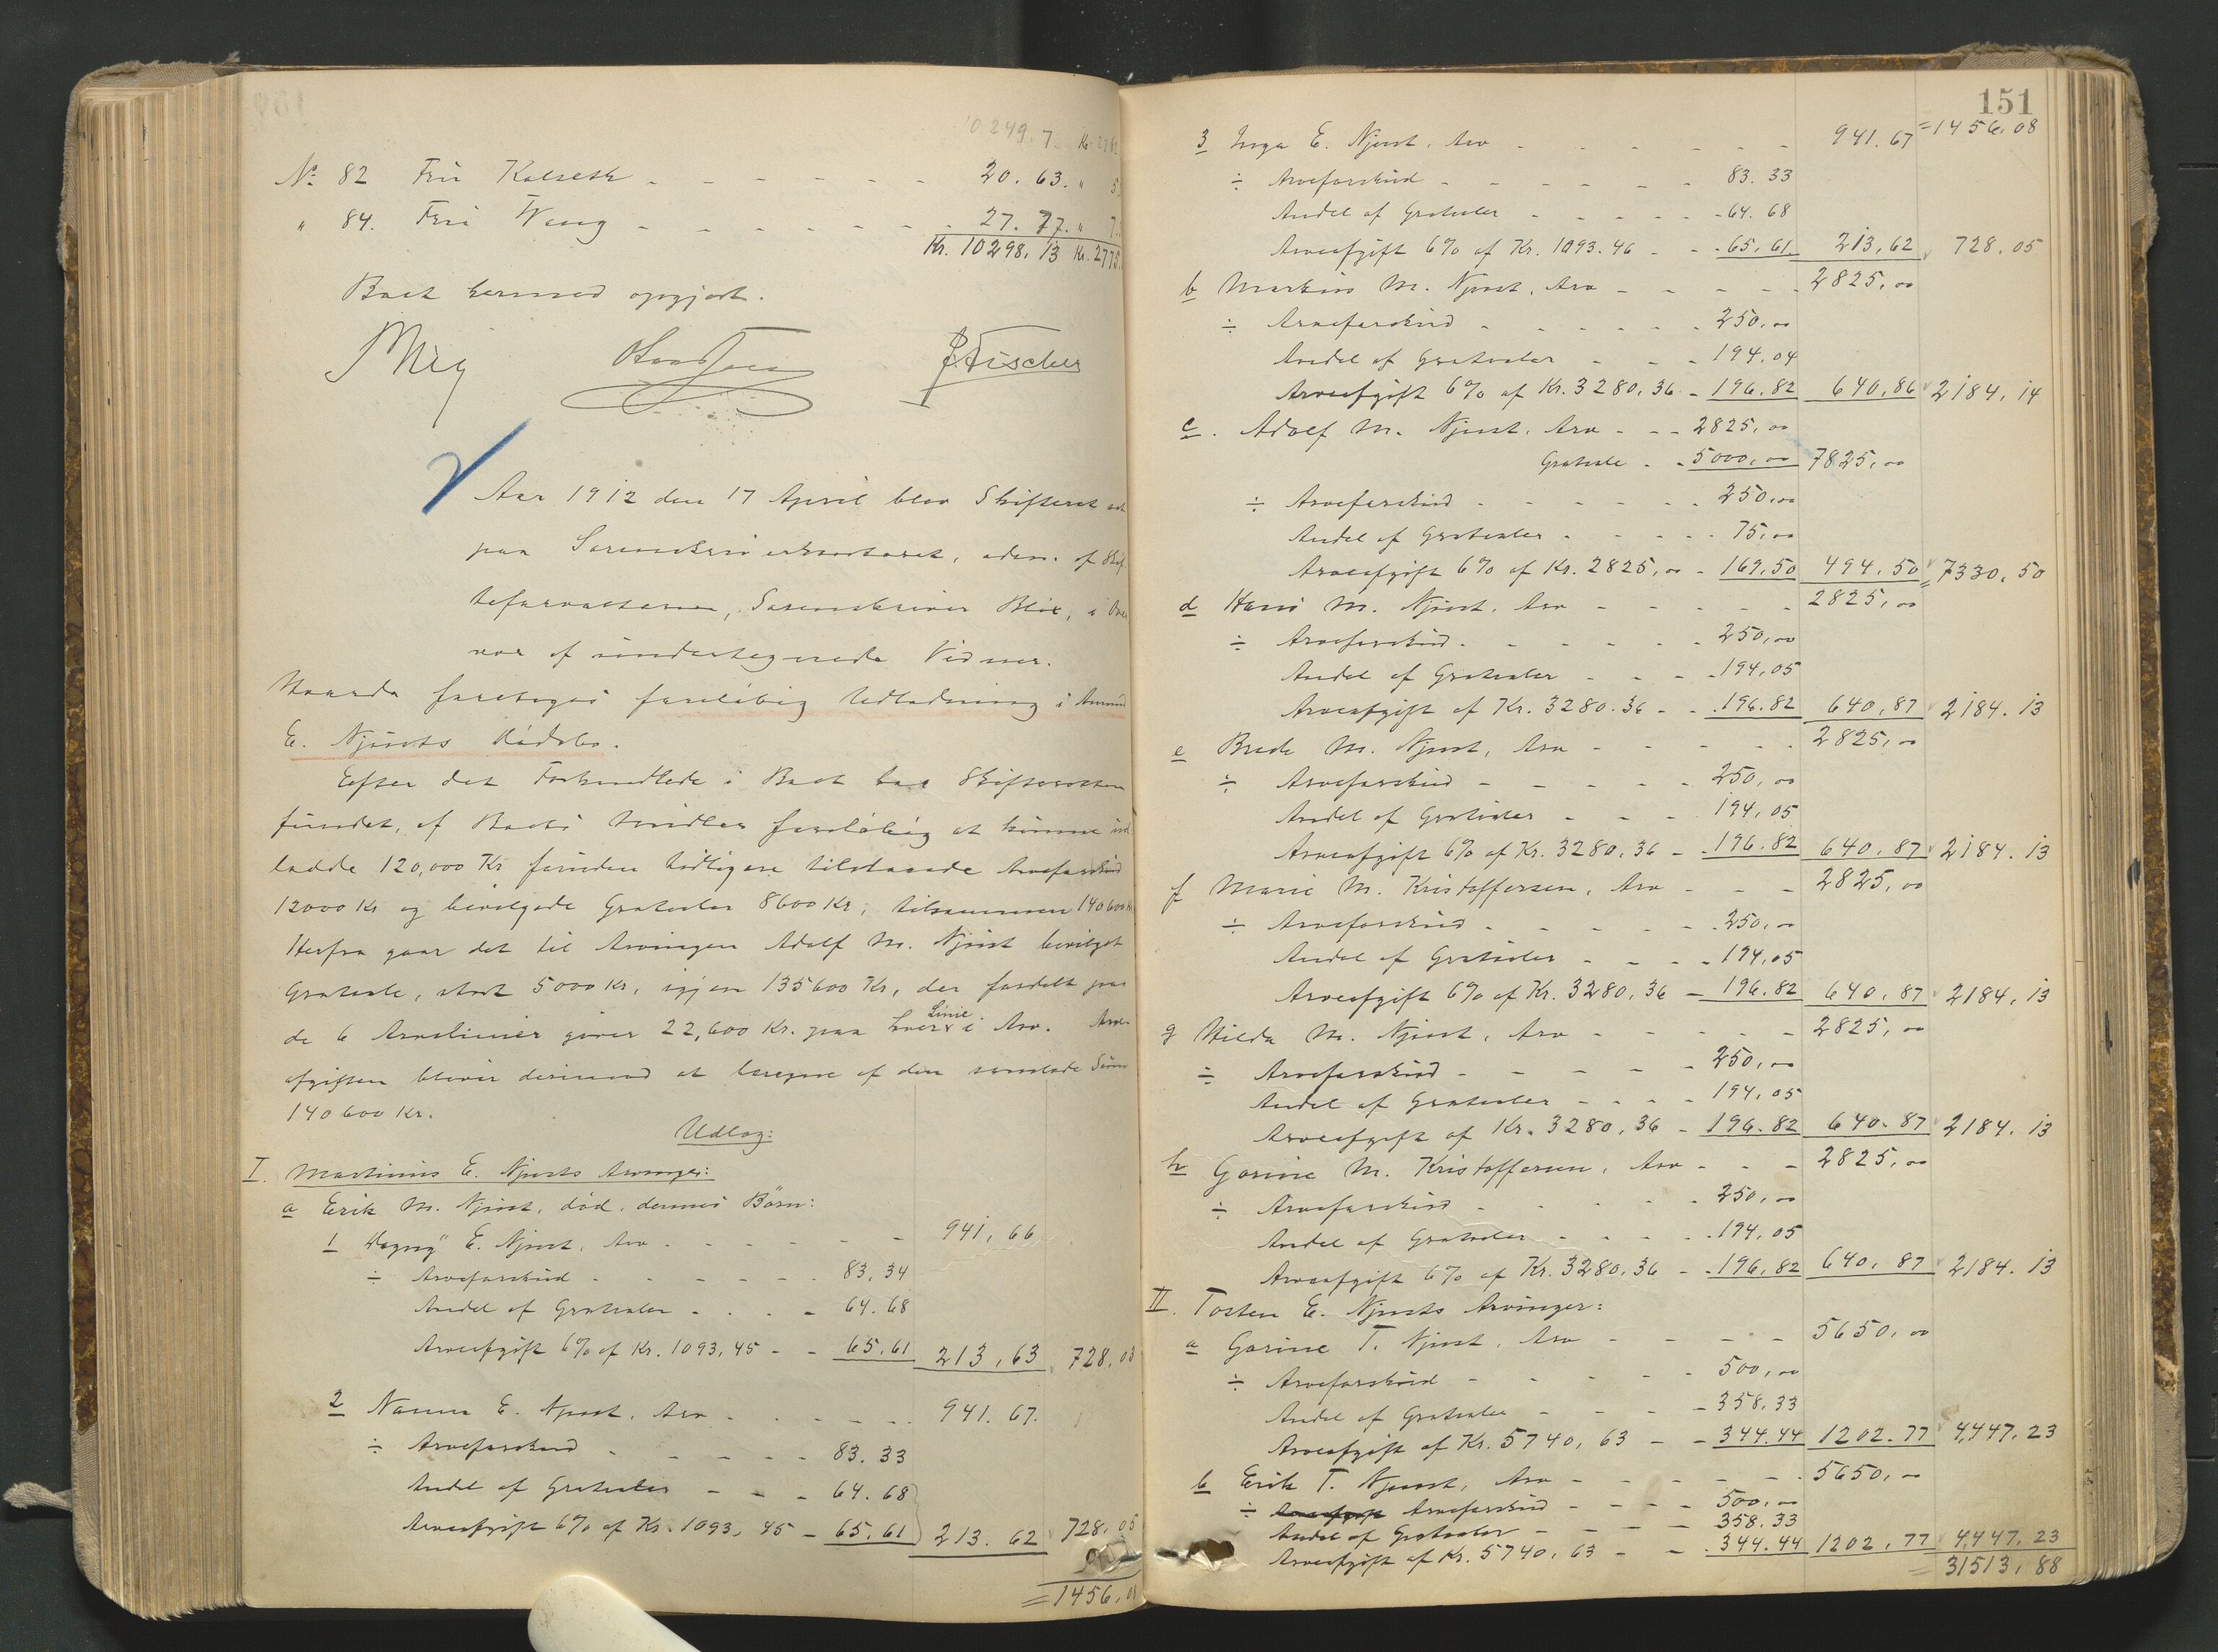 10 249. 7 Kr. 2762
No 82 Fru Kalseth - - - - - - - 20. 63. " 5
" 84. Fru Wang - - - - - - - 27. 77. " 7.
Kr. 10298, 13 Kr. 2775.
Boet hermed opgjort.
Blix
B. Fischer
Aar 1912 den 17 April blev Skifteret sat
paa Sorenskriverkontoret, adm. af Skif-
teforvalteren, Sorenskriver Blix, i Over-
vær af undertegnede Vidner.
Havde foretages foreløbig Udlodning i Amund
E. Njusts Dødsbo.
Efter det Forhandlede i Boet har Skifteretten
fundet, af Boets Midler foreløbig at kunne ud-
lodde 120,000 Kr foruden tidligere tilstaaede Arveforskud
12000 Kr og bevilgede Gratialer 8600 Kr, tilsammen 140600 Kr
Herfra gaar det til Arvingen Adolf M. Njust bevilget
Gratiale, stort 5000 Kr, igjen 135600 Kr, der fordelt paa
de 6 Arvelinier giver 22,600 Kr. paa hver Linie i Arv. Arve-
afgiften bliver derimod at beregne af den samlede Sum
140600 Kr.
Udlæg:
I. Martinus E. Njusts Arvinger:
a Erik M. Njust, død, dennes Børn:
1 Dagny E. Njust, Arv - - - - - - 941, 66
÷ Arveforskud - - - - - - 83, 34
Andel af Gratialer - - - - 64. 68
Arveafgift 6% af Kr. 1093, 45 - - 65, 61 213, 63 728, 03
2 Nanna E. Njust, Arv - - - - - - 941. 67.
÷ Arveforskud - - - - - 83. 33
Andel af Gratialer - - - 64. 68
Arveafgift 6% af Kr. 1093, 45 - 65, 61 213. 62 728, 05
= 1456, 08
151
3 Inga E. Njust, Arv - - - - - - 941. 67 = 1456, 08
÷ Arveforskud - - - - - - 83. 33
Andel af Gratialer - - - - - 64. 68
Arveafgift 6% af Kr. 1093. 46 - - 65, 61. 213, 62 728. 05
b Markus M. Njust, Arv - - - - - 2825, 00
÷ Arveforskud - - - - - - 250, 00
Andel af Gratialer - - - 194. 04
Arveafgift 6% af Kr. 3280, 36 - 196. 82 640, 86 2184, 14
c. Adolf M. Njust, Arv - - - 2825, 00
Gratiale - - 5000, 00 7825, 00
÷ Arveforskud - - - - - - 250, 00
Andel af Gratialer - - - - - 75, 00
Arveafgift 6% af Kr. 2825, 00 - 169, 50 494. 50 = 7330, 50
d Hans M. Njust, Arv - - - - - 2825, 00
÷ Arveforskud - - - - - - 250, 00
Andel af Gratialer - - - - 194, 05
Arveafgift af Kr. 3280. 36 - - 196. 82 640, 87 2184. 13
e Brede M. Njust, Arv - - - - - 2825, 00
÷ Arveforskud - - - - - 250, 00
Andel af Gratialer - - - - 194, 05
Arveafgift 6% af Kr. 3280, 36 - 196. 82 640. 87 2184. 13
f Marie M. Kristoffersen, Arv - - - 2825, 00
÷ Arveforskud - - - - - - 250, 00
Andel af Gratialer - - - - 194, 05
Arveafgift 6% af Kr. 3280, 36 - 196. 82 640, 87 2184, 13
g Hilda M. Njust, Arv - - - - - 2825, 00
÷ Arveforskud - - - - - 250, 00
Andel af Gratialer - - - - 194, 05
Arveafgift af Kr. 3280, 36 - 196. 82 640. 87 2184. 13
h Gorine M. Kristoffersen, Arv - - - 2825, 00
÷ Arveforskud - - - - - 250, 00
Andel af Gratialer - - - - - 194, 05
Arveafgift 6% af Kr. 3280, 36 - - 196, 82 640, 87 2184. 13
II. Tosten E. Njusts Arvinger:
a Gorine T. Njust, Arv - - - - - 5650, 00
÷ Arveforskud - - - - - - 500, 00
Andel af Gratialer - - - - 358, 33
Arveafgift af Kr. 5740, 63 - - 344. 44 1202. 77 4,447. 23
b Erik T. Njust, Arv - - - - - - 5650, 00
÷ Arveforskud - - - - 500, 00
Andel af Gratialer - - - - 358. 33
Arveafgift af Kr. 5740, 63 - - 344. 44 1202, 77 4,447, 23
= 31513, 88